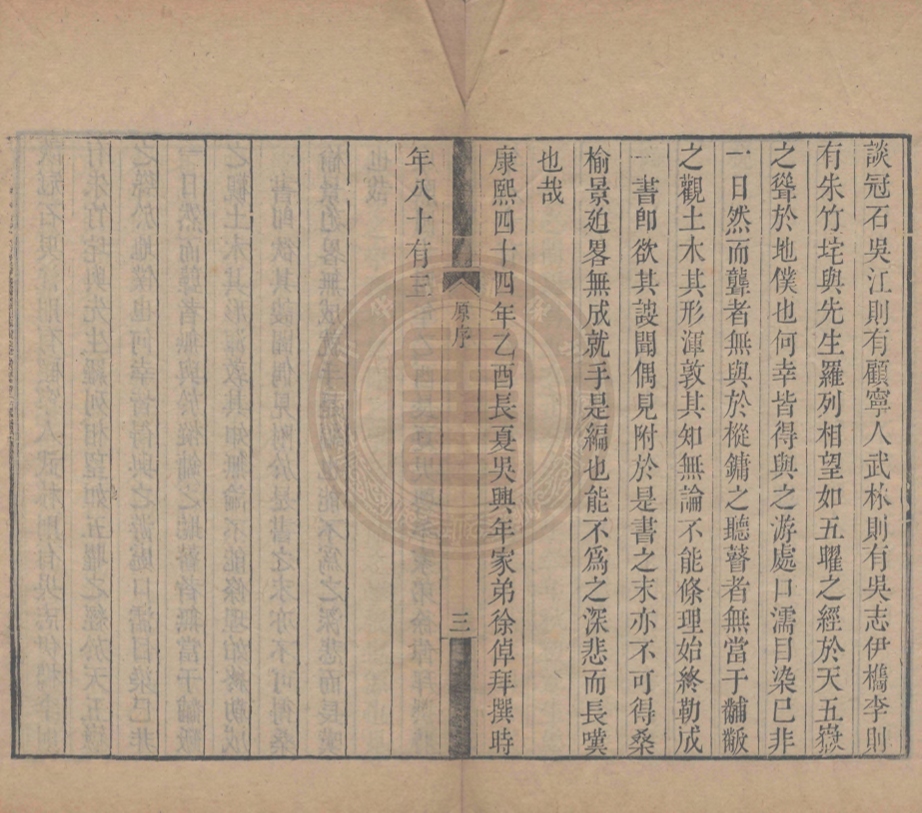 談冠石吳江則有顧寧人武林則有吳志伊檇李則
有朱竹垞與先生羅列相望如五曜之經於天五嶽
之聳於地僕也何幸皆得與之游處口濡目染已非
一日然而聾者無與於樅鏞之聽瞽者無當于黼黻
之觀土木其形渾敦其知無論不能條理始終勒成
一書卽欲其謏聞偶見附於是書之末亦不可得桑
榆景廹畧無成就手是編也能不爲之深悲而長嘆
也哉
康熙四十四年乙酉長夏吳興年家弟徐倬拜撰時
年八十有三
原序
三